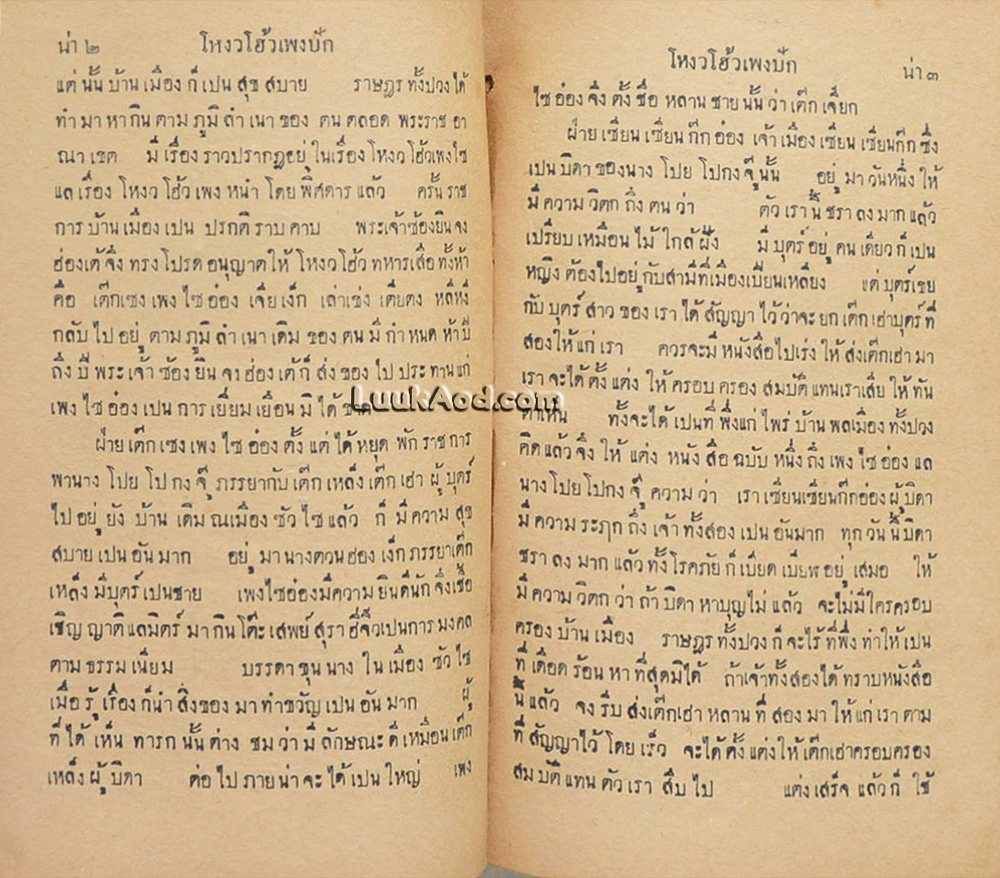 น่า ๒ โหงวโฮ้วเพงปัก
แต่ นั้น บ้าน เมือง ก็ เปน สุข สบาย ราษฎร ทั้งปวง ได้
ทำ มา หา กิน ตาม ภูมิ ลำ เนา ของ ตน ตลอด พระราช อา
ณา เขต มี เรื่อง ราวปรากฏอยู่ ในเรื่อง โหงว โฮ้วเพงไซ
แล เรื่อง โหงว โฮ้ว เพง หนำ โดย พิศดาร แล้ว ครั้น ราช
การ บ้าน เมือง เปน ปรกติ ราบ คาบ พระเจ้าซ้องยินจง
ฮ่องเต้ จึง ทรง โปรด อนุญาตให้ โหงวโฮ้ว ทหารเสือ ทั้งห้า
คือ เต๊กเซง เพง ไซ อ๋อง เจียเง็ก เล่าเซ่ง เตียตง หลีหงี
กลับ ไป อยู่ ตาม ภูมิ ลำ เนา เดิม ของ ตน มี กำ หนด ห้า ปี
ถึง ปี พระ เจ้า ซ้อง ยิน จง ฮ่อง เต้ ก็ ส่ง ของ ไป ประ ทาน แก่
เพง ไซ อ๋อง เปน การ เยี่ยม เยือน มิ ได้ ขาด
LuukAod.com
ฝ่าย เต๊ก เซง เพง ไซ อ๋อง ตั้ง แต่ ได้ หยุด พัก ราช การ
พานาง โปย โป กง จุ๊ ภรรยา กับ เต๊ก เหล็ง เต๊ก เฮา ผู้ บุตร์
ไป อยู่ ยัง บ้าน เดิม ณเมือง ซัว ไซ แล้ว ก็ มี ความ สุข
สบาย เปน อัน มาก อยู่ มา นาง ตวน ฮอง เง็ก ภรรยา เต๊ก
เหล็ง มีบุตร์ เปนชาย เพงไซอ๋องมีความ ยินดีนัก จึงเชื้อ
เชิญ ญาติ แลมิตร์ มา กิน โต๊ะ เสพย์ สุรา ฮี่จิ๊วเปนการ มงคล
ตาม ธรรม เนียม บรรดา ขุน นาง ใน เมือง ซัว ไซ
เมื่อ รู้ เรื่อง ก็นำ สิ่งของ มา ทำขวัญ เปน อัน มาก ผู้
ที่ ได้ เห็น ทารก นั้น ต่าง ชม ว่า มี ลักษณะ ดี เหมือน เต๊ก
เหล็ง ผู้ บิดา ต่อ ไป ภาย น่า จะ ได้ เปน ใหญ่ เพง
โหงวโฮ้วเพงปัก น่า ๓
ไซ อ๋อง จึง ตั้ง ชื่อ หลาน ชาย นั้น ว่า เต๊ก เจี๊ยก
ฝ่าย เซียน เซียน ก๊ก อ๋อง เจ้า เมือง เซียน เซียนก๊ก ซึ่ง
เปน บิดา ของนาง โปย โปกง จุ๊ นั้น อยู่ มา วันหนึ่ง ให้
มี ความ วิตก ถึง ตน ว่า ตัว เรา นี้ ชรา ลง มาก แล้ว
เปรียบ เหมือน ไม้ ใกล้ ฝั่ง มี บุตร์ อยู่ คน เดียว ก็ เปน
หญิง ต้องไปอยู่ กับสามีที่เมืองเปียนเหลียง แต่ บุตร์เขย
กับ บุตร์ สาว ของ เรา ได้ สัญญา ไว้ ว่าจะ ยก เต๊ก เฮาบุตร์ ที่
สองให้ แก่ เรา ควรจะมี หนังสือ ไปเร่ง ให้ ส่งเต๊กเฮา มา
เรา จะได้ ตั้ง แต่ง ให้ ครอบ ครอง สมบัติ แทนเราเสีย ให้ ทัน
ตาเห็น ทั้งจะได้ เปนที่ พึ่งแก่ ไพร่ บ้าน พลเมือง ทั้งปวง
คิด แล้ว จึง ให้ แต่ง หนัง สือ ฉบับ หนึ่ง ถึง เพง ไซ อ๋อง แล
นาง โปย โปกง จุ๊ ความ ว่า เรา เซียนเซียนก๊กอ๋อง ผู้ บิดา
มี ความ ระฦก ถึง เจ้า ทั้งสอง เปน อันมาก ทุก วัน นี้ บิดา
ชรา ลง มาก แล้ว ทั้ง โรคภัย ก็ เบียด เบียฬ อยู่ เสมอ ให้
มี ความ วิตก ว่า ถ้า บิดา หาบุญไม่ แล้ว จะไม่มี ใครครอบ
ครอง บ้าน เมือง ราษฎร ทั้งปวง ก็ จะไร้ ที่พึ่ง ทำให้ เปน
ที่ เดือด ร้อน หา ที่สุดมิได้ ถ้าเจ้าทั้งสองได้ ทราบหนังสือ
นี้ แล้ว จง รีบ ส่งเต๊กเฮา หลาน ที่ สอง มา ให้ แก่ เรา ตาม
ที่ สัญญาไว้ โดย เร็ว จะได้ ตั้ง แต่งให้ เต๊กเฮาครอบครอง
สม บัติ แทน ตัว เรา สืบ ไป แต่ง เสร็จ แล้ว ก็ ใช้